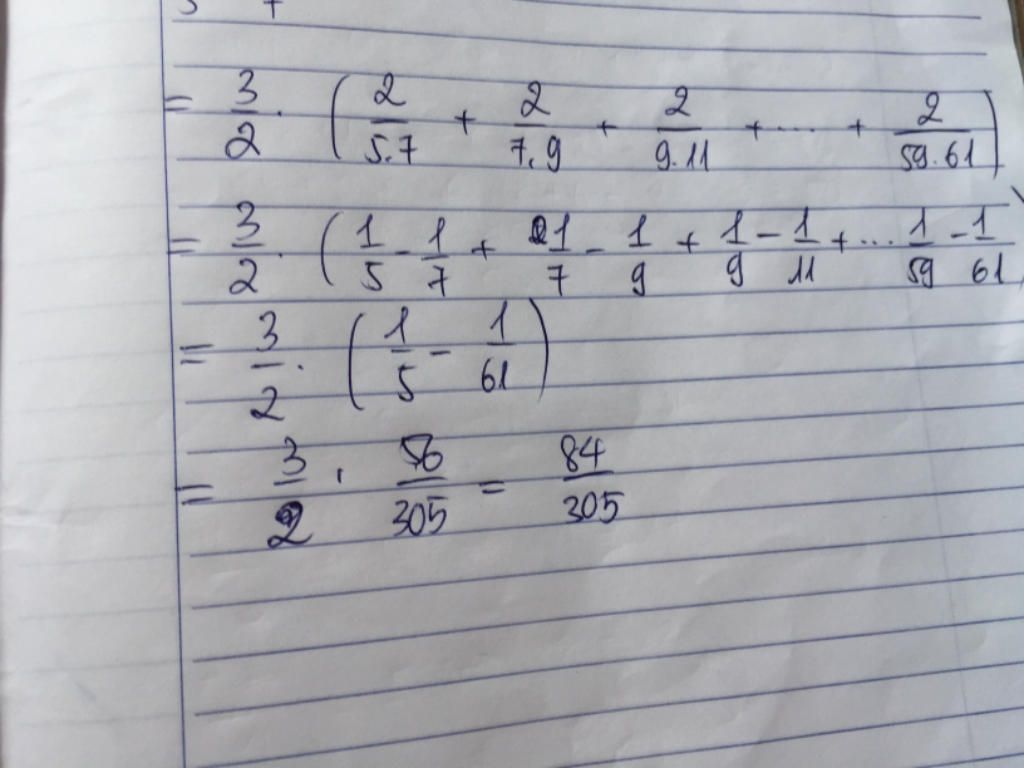 = 3/2 . (2/5.7 + 2/7.9 + 2/9.11 + .... + 2/59.61)
= 3/2 . (1/5 - 1/7 + 1/7 - 1/9 + 1/9 - 1/11 + ... 1/59 - 1/61)
= 3/2 . (1/5 - 1/61)
= 3/2 . 56/305 = 84/305